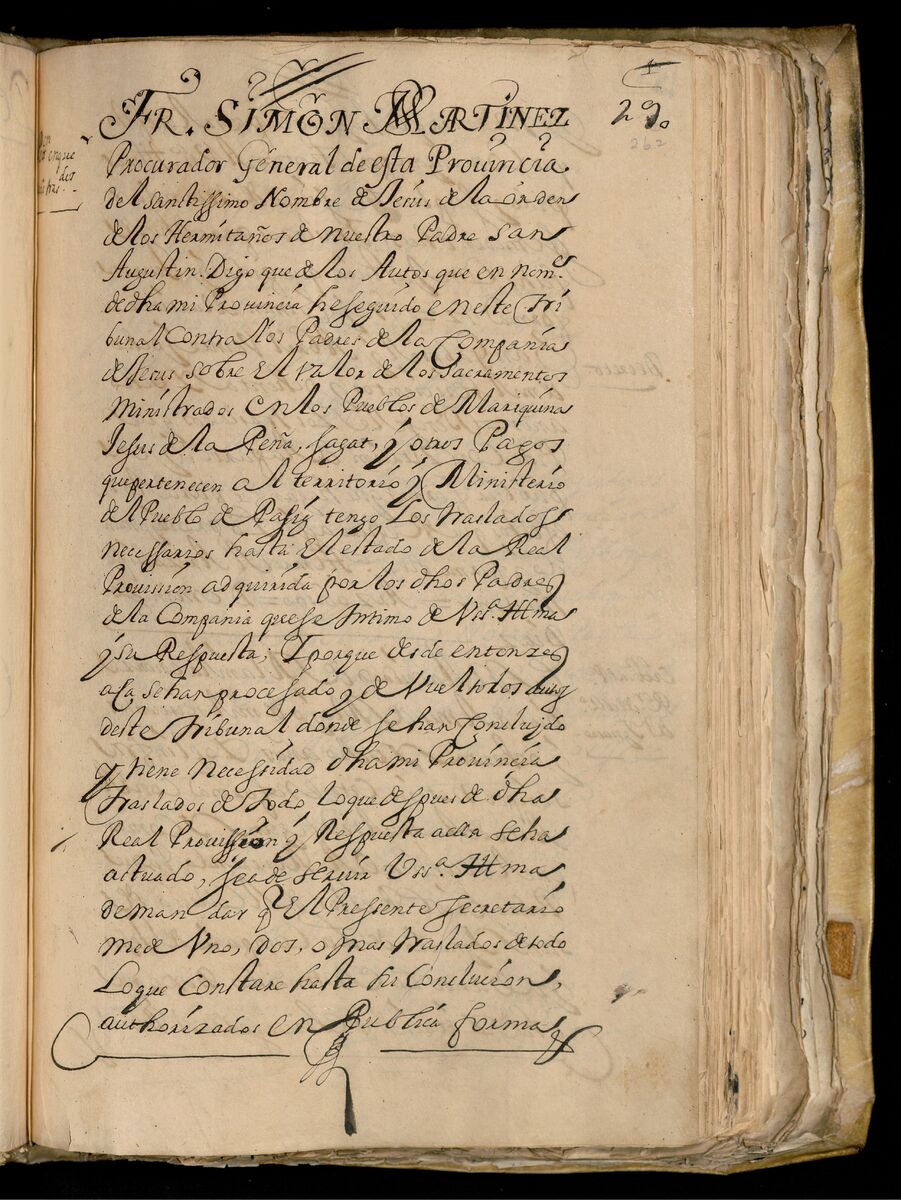 FR. SIMON MARTINEZ
Procurador General de esta Prouincia
del santissimo Nombre de Jesus de la orden
de los Hermitaños de nuestro Padre san
Augustin. Digo que de los Autos que en nom.e
de dha mi Prouincia he seguido en este Tri
bunal Contra los Padres de la Compañia
de Jesus sobre El valor de los sacramentos
Ministrados en los Pueblos de Mariquina
Jesus de la Peña, sagat, y otros Pagos
que pertenecen al territorio y Ministerio
del Pueblo de Pasig tengo los traslados
necessarios hasta el estado de la Real
Prouission adquirida por los dhos Padres
de la Compania que se Intimo de Vss.a Illma
y su Respuesta; Y porque desde entonzes
aca se han procesado y de Vuelto dos autos
deste Tribunal donde se han Concluido
y tiene necessidad dha mi Prouincia
traslados de todo lo que despues de dha
Real Prouission y Respuesta aella seha
actuado, sea de seruir Vss.a Illma
de mandar q El Pressente secretario
me de Vno, dos, o mas traslados de todo
Lo que Constare hasta su Conclucion,
authorizados en Publica forma
29
262